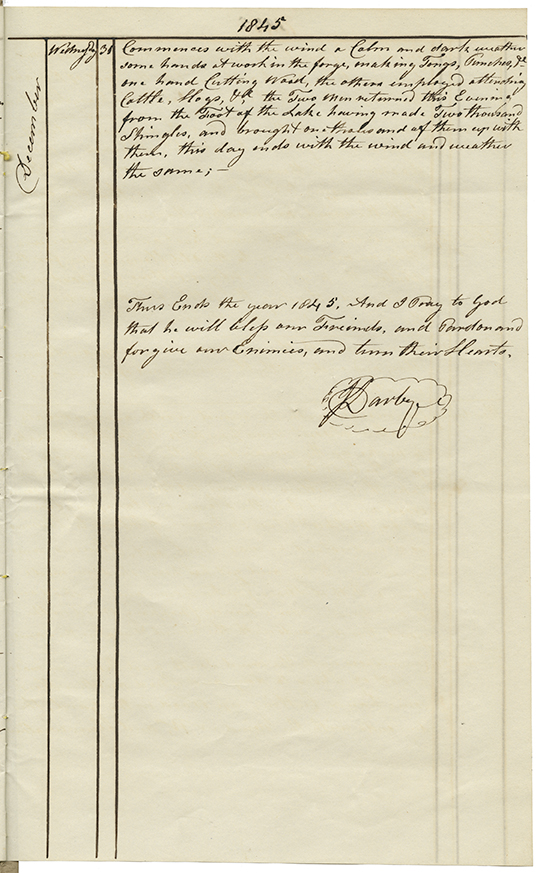 1845
December
Wednesdy 31 Commences with the wind a Calm and dark weather
some hands at work in the forge, making Tongs, Punches, &c
one hand Cutting Wood, the others employed attending
Cattle, Hogs, &c the Two men returned this Evening
from the Foot of the Lake having made Two thousand
Shingles, and brought one thousand of them up with
them, this day ends with the wind and weather
the same; —
Thus Ends the year 1845, And I Pray to God
that he will bless our Freinds, and Pardon and
forgive our Enimies, and turn their Hearts.
Darby